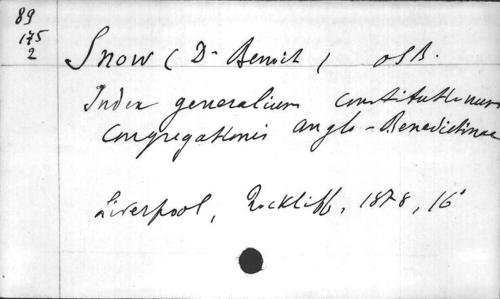 89
175
2
Snow (D- Benoit) OSB.
Index generalium constitutionum
Congregationis Anglo-Benedictinae
Liverpool, Rockliff, 1878, 16°